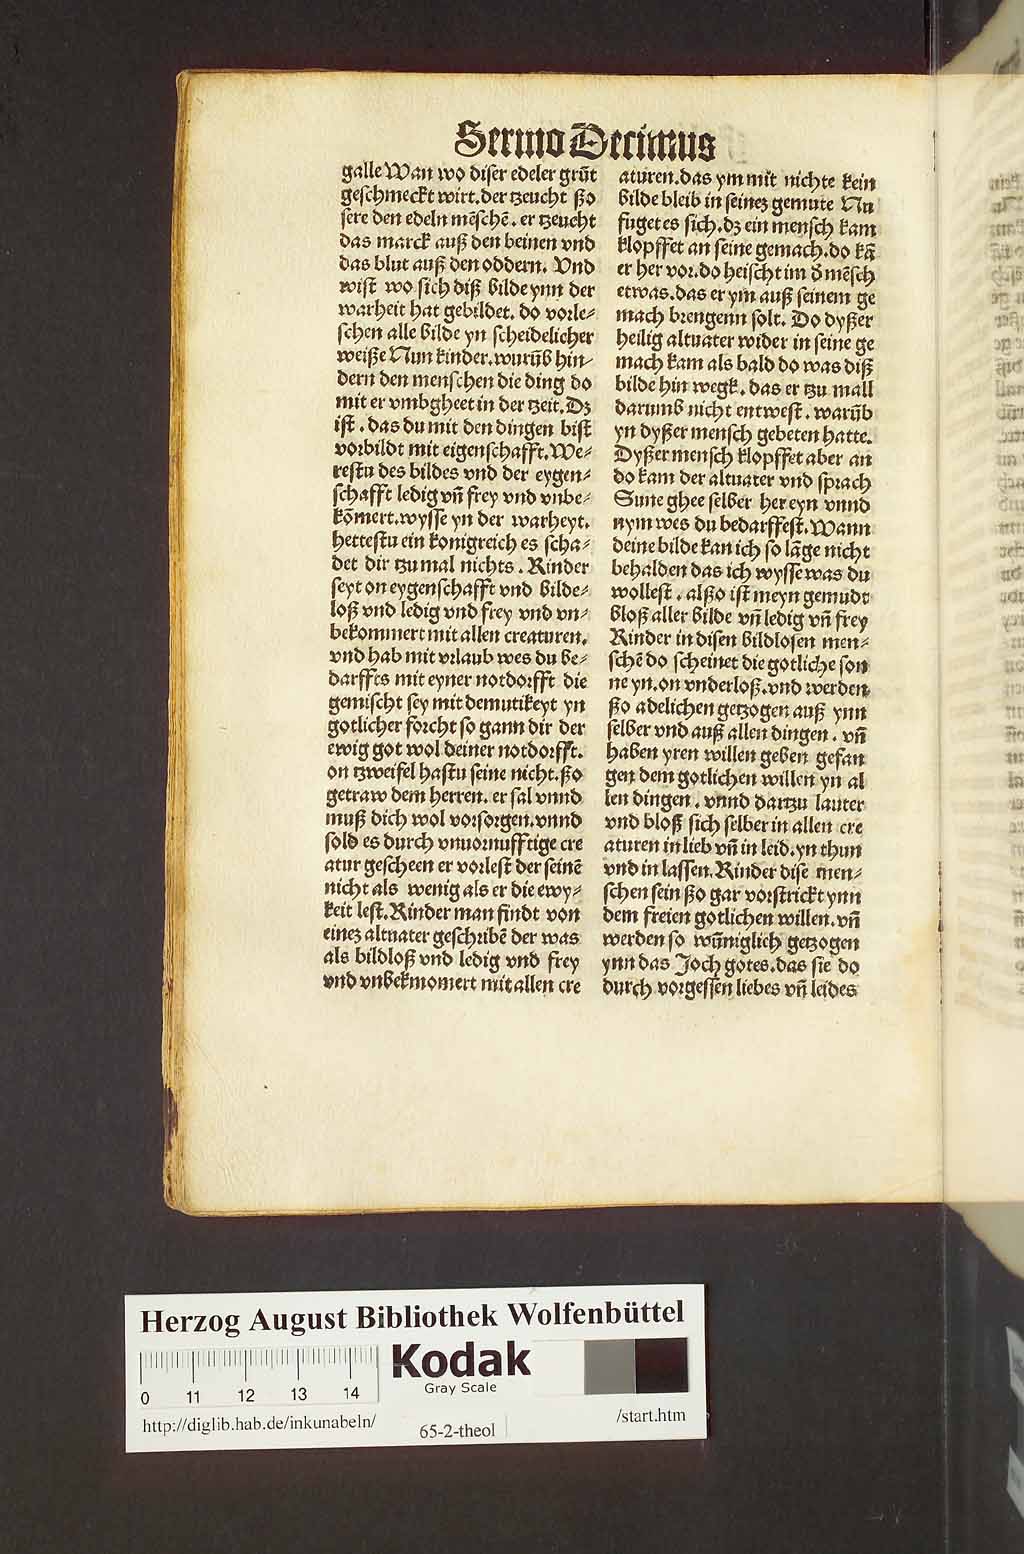 Sermo Decimus
galle Wan wo diser edeler grūt
geschmeckt wirt. der tzeucht ßo
sere den edeln mēschē. er tzeucht
das marck auß den beinen vnd
das blut auß den oddern. Vnd
wist wo sich diß bilde ynn der
warheit hat gebildet. do vorle⸗
schen alle bilde yn scheidelicher
weiße Nun kinder. wurūb hin⸗
dern den menschen die ding do
mit er vmbgheet in der tzeit. Dz
ist. das du mit den dingen bist
vorbildt mit eigenschafft. We⸗
restu des bildes vnd der eygen⸗
schafft ledig vn̄ frey vnd vnbe⸗
kōmert. wysse yn der warheyt.
hettestu ein konigreich es scha⸗
det dir tzu mal nichts. Kinder
seyt on eygenschafft vnd bilde⸗
loß vnd ledig vnd frey vnd vn⸗
bekommert mit allen creaturen.
vnd hab mit vrlaub wes du be⸗
darfftes mit eyner notdorfft die
gemischt sey mit demutikeyt yn
gotlicher forcht so gann dir der
ewig got wol deiner notdorfft.
on tzweifel hastu seine nicht. ßo
getraw dem herren. er sal vnnd
muß dich wol vorsorgen. vnnd
sold es durch vnuornufftige cre
atur gescheen er vorlest der seinē
nicht als wenig als er die ewy⸗
keit lest. Kinder man findt von
einez altuater geschribē der was
als bildloß vnd ledig vnd frey
vnd vnbekmomert mit allen cre
aturen. das ym mit nichte kein
bilde bleib in seinez gemute Nu
fuget es sich. dz ein mensch kam
klopffet an seine gemach. do kā
er her vor. do heischt im d̄ mēsch
etwas. das er ym auß seinem ge
mach brengenn solt. Do dyßer
heilig altuater wider in seine ge
mach kam als bald do was diß
bilde hin wegk. das er tzu mall
darumb nicht entwest. warūb
yn dyßer mensch gebeten hatte.
Dyßer mensch klopffet aber an
do kam der altuater vnd sprach
Sune ghee selber her eyn vnnd
nym wes du bedarffest. Wann
deine bilde kan ich so lāge nicht
behalden das ich wysse was du
wollest. alßo ist meyn gemudt
bloß aller bilde vn̄ ledig vn̄ frey
Kinder in disen bildlosen men⸗
schē do scheinet die gotliche son
ne yn. on vnderloß. vnd werden
ßo adelichen getzogen auß ynn
selber vnd auß allen dingen. vn̄
haben yren willen geben gefan
gen dem gotlichen willen yn al
len dingen. vnnd dartzu lauter
vnd bloß sich selber in allen cre
aturen in lieb vn̄ in leid. yn thun
vnd in lassen. Kinder dise men⸗
schen sein ßo gar vorstrickt ynn
dem freien gotlichen willen. vn̄
werden so wūniglich getzogen
ynn das Joch gotes. das sie do
durch vorgessen liebes vn̄ leides
Herzog August Bibliothek Wolfenbüttel
Kodak
Gray Scale
0 11 12 13 14
http://diglib.hab.de/inkunabeln/
65-2-theol
/start.htm